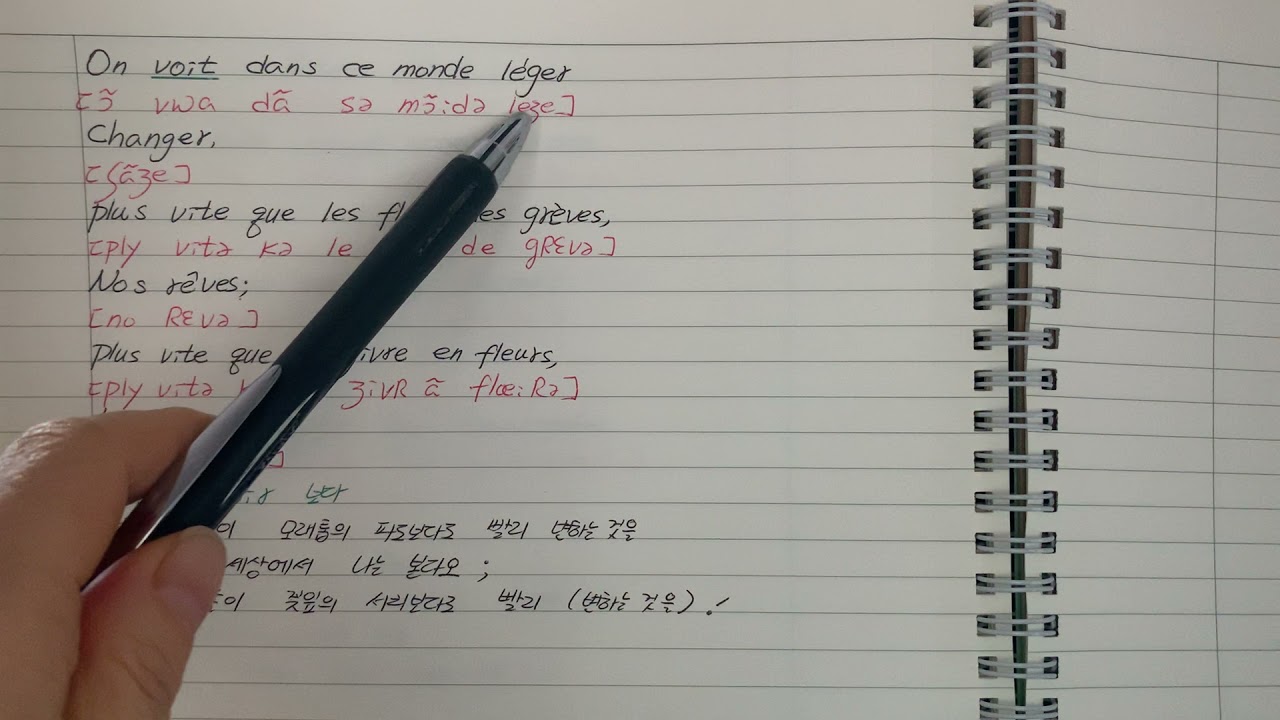 On voit dans ce monde léger
[ɔ̃ vwa dɑ̃ sə mɔ̃:də leʒe]
Changer,
[ʃɑ̃ʒe]
plus vite que les des grèves,
[ply vitə kə le de gREvə]
Nos rêves;
[no REvə]
plus vite que en fleurs,
[ply vitə ʒivR ɑ̃ flœ:Rə]
]
보다
모래톱의 파도보다도 빨리 변하는 것을
세상에서 나는 본다오 ;
꽃잎의 서리보다도 빨리 (변하는 것을) !